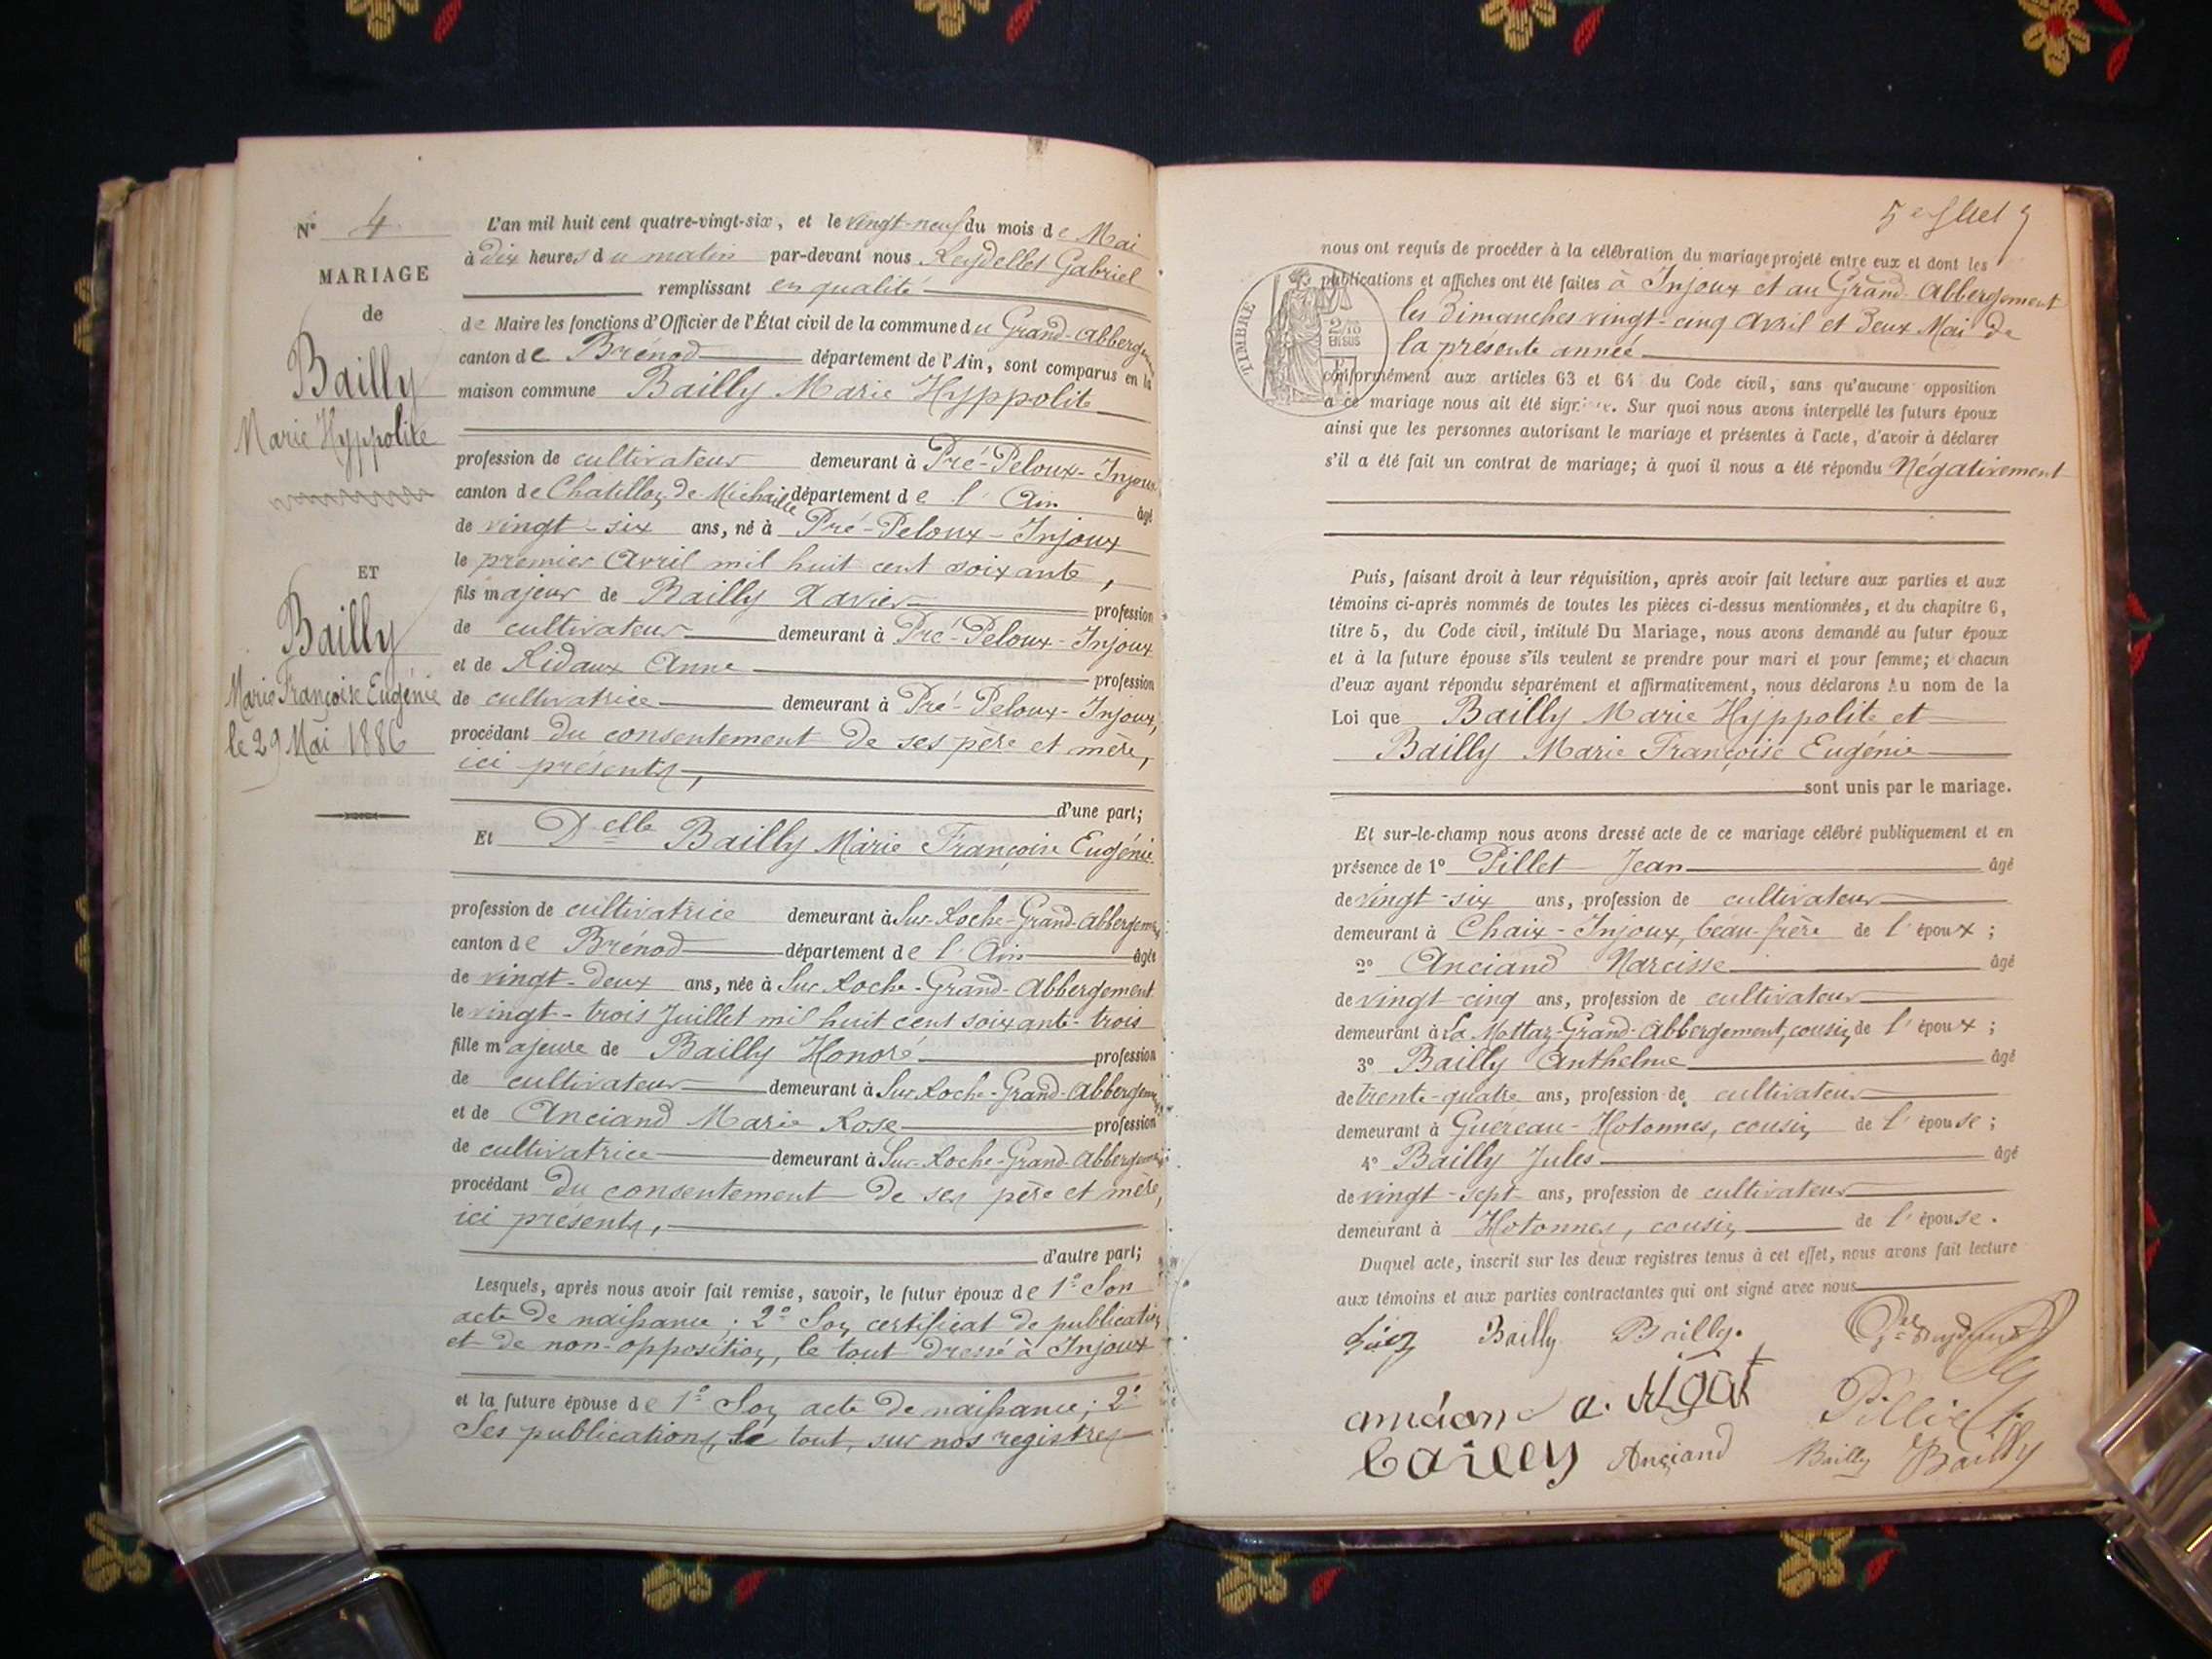 N° 4
MARIAGE
de
Bailly
Marie Hyppolite
ET
Bailly
Marie Françoise Eugénie
le 29 Mai 1886
L'an mil huit cent quatre-vingt-six, et le vingt-neuf du mois de Mai
à dix heures du matin par-devant nous Reydellet Gabriel
remplissant en qualité
de Maire les fonctions d'Officier de l'État civil de la commune du Grand-Abbergement
canton de Brénod département de l'Ain, sont comparus en la
maison commune Bailly Marie Hyppolite
profession de cultivateur demeurant à Pré-Peloux-Injoux
canton de Chatillon de Michaille département de l'Ain âgé
de vingt-six ans, né à Pré-Peloux-Injoux
le premier Avril mil huit cent soixante,
fils majeur de Bailly Xavier profession
de cultivateur demeurant à Pré-Peloux-Injoux
et de Ridaux Anne profession
de cultivatrice demeurant à Pré-Peloux-Injoux,
procédant du consentement de ses père et mère,
ici présents,
d'une part;
Et Delle Bailly Marie Françoise Eugénie
profession de cultivatrice demeurant à Sur-Roche-Grand-Abbergement
canton de Brénod département de l'Ain âgée
de vingt-deux ans, née à Sur Roche-Grand-Abbergement
le vingt-trois Juillet mil huit cent soixante-trois
fille majeure de Bailly Honoré profession
de cultivateur demeurant à Sur Roche-Grand-Abbergement
et de Anciand Marie Rose profession
de cultivatrice demeurant à Sur-Roche-Grand-Abbergement
procédant du consentement de ses père et mère,
ici présents,
d'autre part;
Lesquels, après nous avoir fait remise, savoir, le futur époux de 1° Son
acte de naissance; 2° Son certificat de publication
et de non-opposition, le tout dressé à Injoux
et la future épouse de 1° Son acte de naissance; 2°
Ses publications, le tout, sur nos registres
TIMBRE
2/10
EN SUS
nous ont requis de procéder à la célébration du mariage projeté entre eux et dont les
publications et affiches ont été faites à Injoux et au Grand-Abbergement
les dimanches vingt-cinq Avril et deux Mai de
la présente année
conformément aux articles 63 et 64 du Code civil, sans qu'aucune opposition
à ce mariage nous ait été signifiée. Sur quoi nous avons interpellé les futurs époux
ainsi que les personnes autorisant le mariage et présentes à l'acte, d'avoir à déclarer
s'il a été fait un contrat de mariage; à quoi il nous a été répondu Négativement
Puis, faisant droit à leur réquisition, après avoir fait lecture aux parties et aux
témoins ci-après nommés de toutes les pièces ci-dessus mentionnées, et du chapitre 6,
titre 5, du Code civil, intitulé Du Mariage, nous avons demandé au futur époux
et à la future épouse s'ils veulent se prendre pour mari et pour femme; et chacun
d'eux ayant répondu séparément et affirmativement, nous déclarons Au nom de la
Loi que Bailly Marie Hyppolite et
Bailly Marie Françoise Eugénie
sont unis par le mariage.
Et sur-le-champ nous avons dressé acte de ce mariage célébré publiquement et en
présence de 1° Pillet Jean âgé
de vingt-six ans, profession de cultivateur
demeurant à Chaix-Injoux, beau-frère de l'époux;
2° Anciand Narcisse âgé
de vingt-cinq ans, profession de cultivateur
demeurant à La Mottaz-Grand-Abbergement, cousin de l'époux;
3° Bailly Anthelme âgé
de trente-quatre ans, profession de cultivateur
demeurant à Guéreau-Hotonnes, cousin de l'épouse;
4° Bailly Jules âgé
de vingt-sept ans, profession de cultivateur
demeurant à Hotonnes, cousin de l'épouse.
Duquel acte, inscrit sur les deux registres tenus à cet effet, nous avons fait lecture
aux témoins et aux parties contractantes qui ont signé avec nous
Bailly Bailly.
Bailly Anciand Bailly Bailly